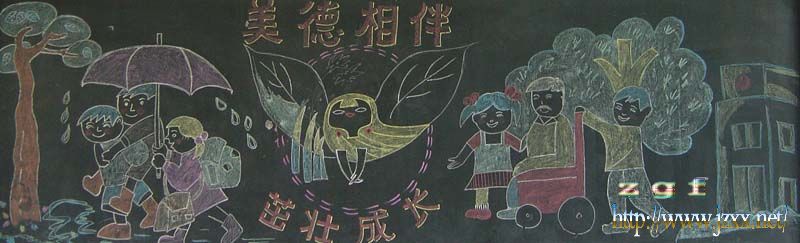 美德相伴
茁壮成长
zgf
http://www.jzxx.net/